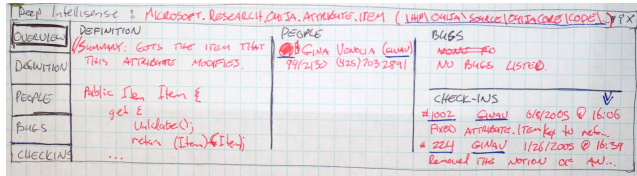 Deep Intellisense : Microsoft.Research.Ouija.Attribute.Item (\\HIP\Ouija\Source\OuijaCore\Code\...) ? X
OVERVIEW
DEFINITION
PEOPLE
BUGS
CHECKINS
DEFINITION
//Summary: Gets the item that
this attribute modifies.
Public Item Item {
get {
Validate();
return (Item)
...
PEOPLE
Gina Venolia (ginav)
99/2130 (425) 703 2891
BUGS
No bugs listed.
CHECK-INS
#1002 GINAV 6/8/2005 @ 16:06
Fixed Attribute.Item
#224 GINAV 1/26/2005 @ 16:39
Removed the notion of an...